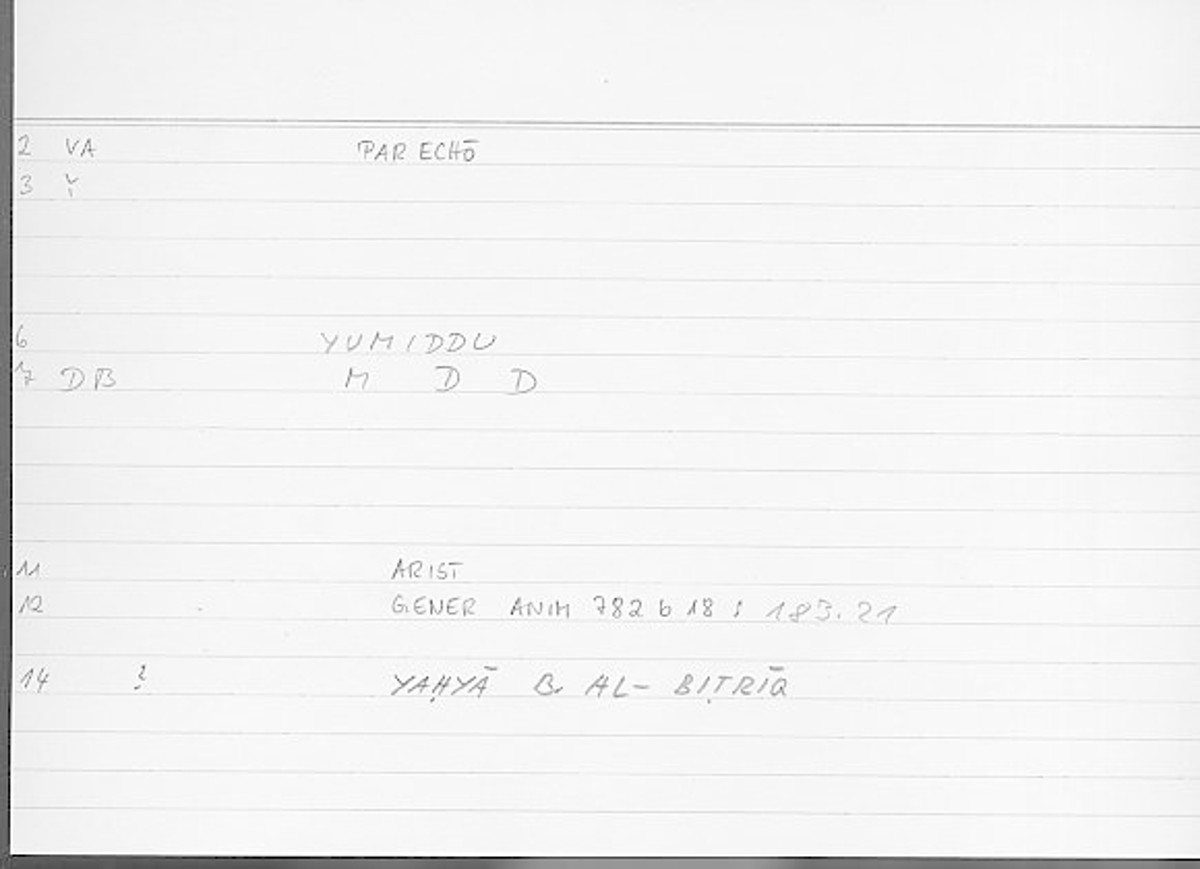 2 VA PARECHŌ
3
6 YUMIDDU
7 DB M D D
11 ARIST
12 GENER ANIM 782 b 18 ; 183.21
14 ? YAḤYĀ B AL-BIṬRĪQ